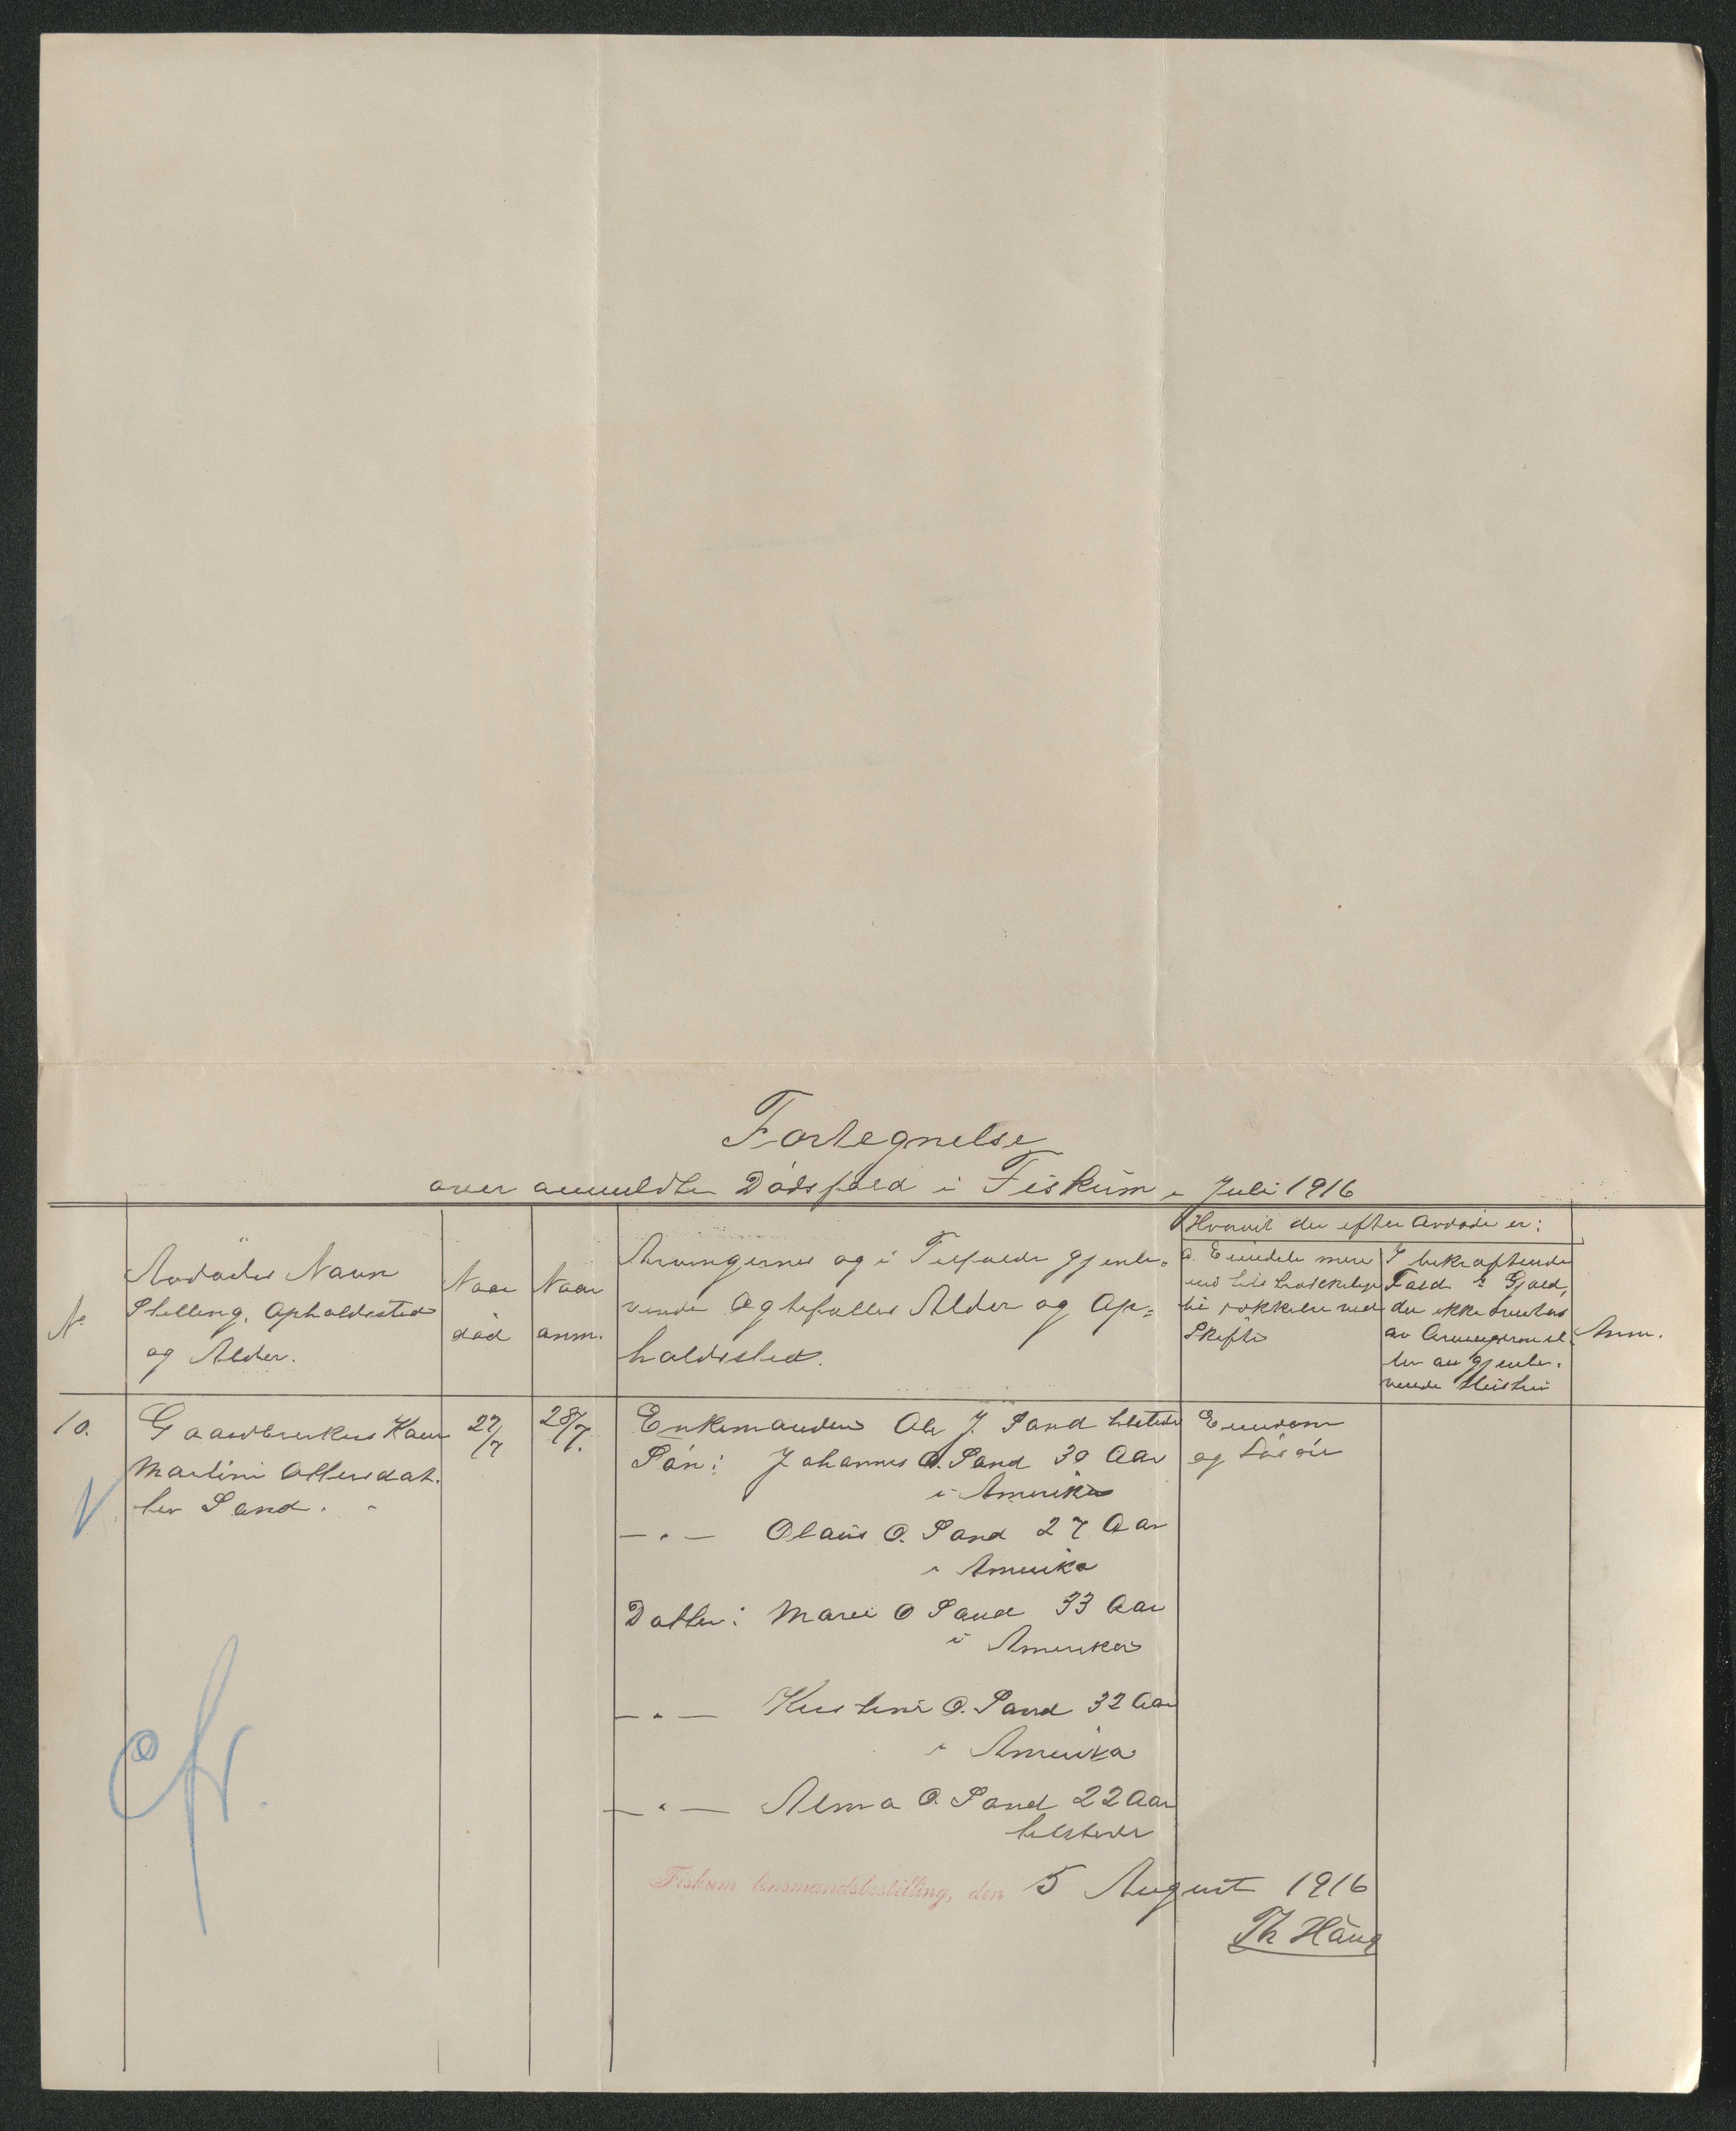 Fortegnelse
over anmeldte Dødsfald i Fiskum i Juli 1916
No
Avdødes Navn
Stilling, Opholdssted
og Alder.
Naar
død
Naar
anm.
Arvingernes og i Tilfælde gjenle-
vende Ægtefælles Alder og Op-
holdssted.
Hvorvit der efter Avdøde er:
a. Eiendele mere
end tilstrækkelige
til dækkelse ved
Skifte
I bekræftende
Fald: Gjæld,
der ikke
av Arvingerne el-
ler av gjenle-
vende
Anm.
10.
Gaardbrukers Kone
Martine Ottersdat-
ter Sand.
27/7
28/7.
Enkemanden Ole J. Sand tilstede
Søn: Johannes O. Sand 30 Aar
i Amerika
— " — Olaus O. Sand 27 Aar
i Amerika
Datter: Marie O Sand 33 Aar
i Amerika
— " — Kristine O. Sand 32 Aar
i Amerika
— " — Alma O. Sand 22 Aar
tilstede
Eiendom
og Løsøre
cfr.
Fiskum lensmandsbestilling, den 5 August 1916
Th Haug